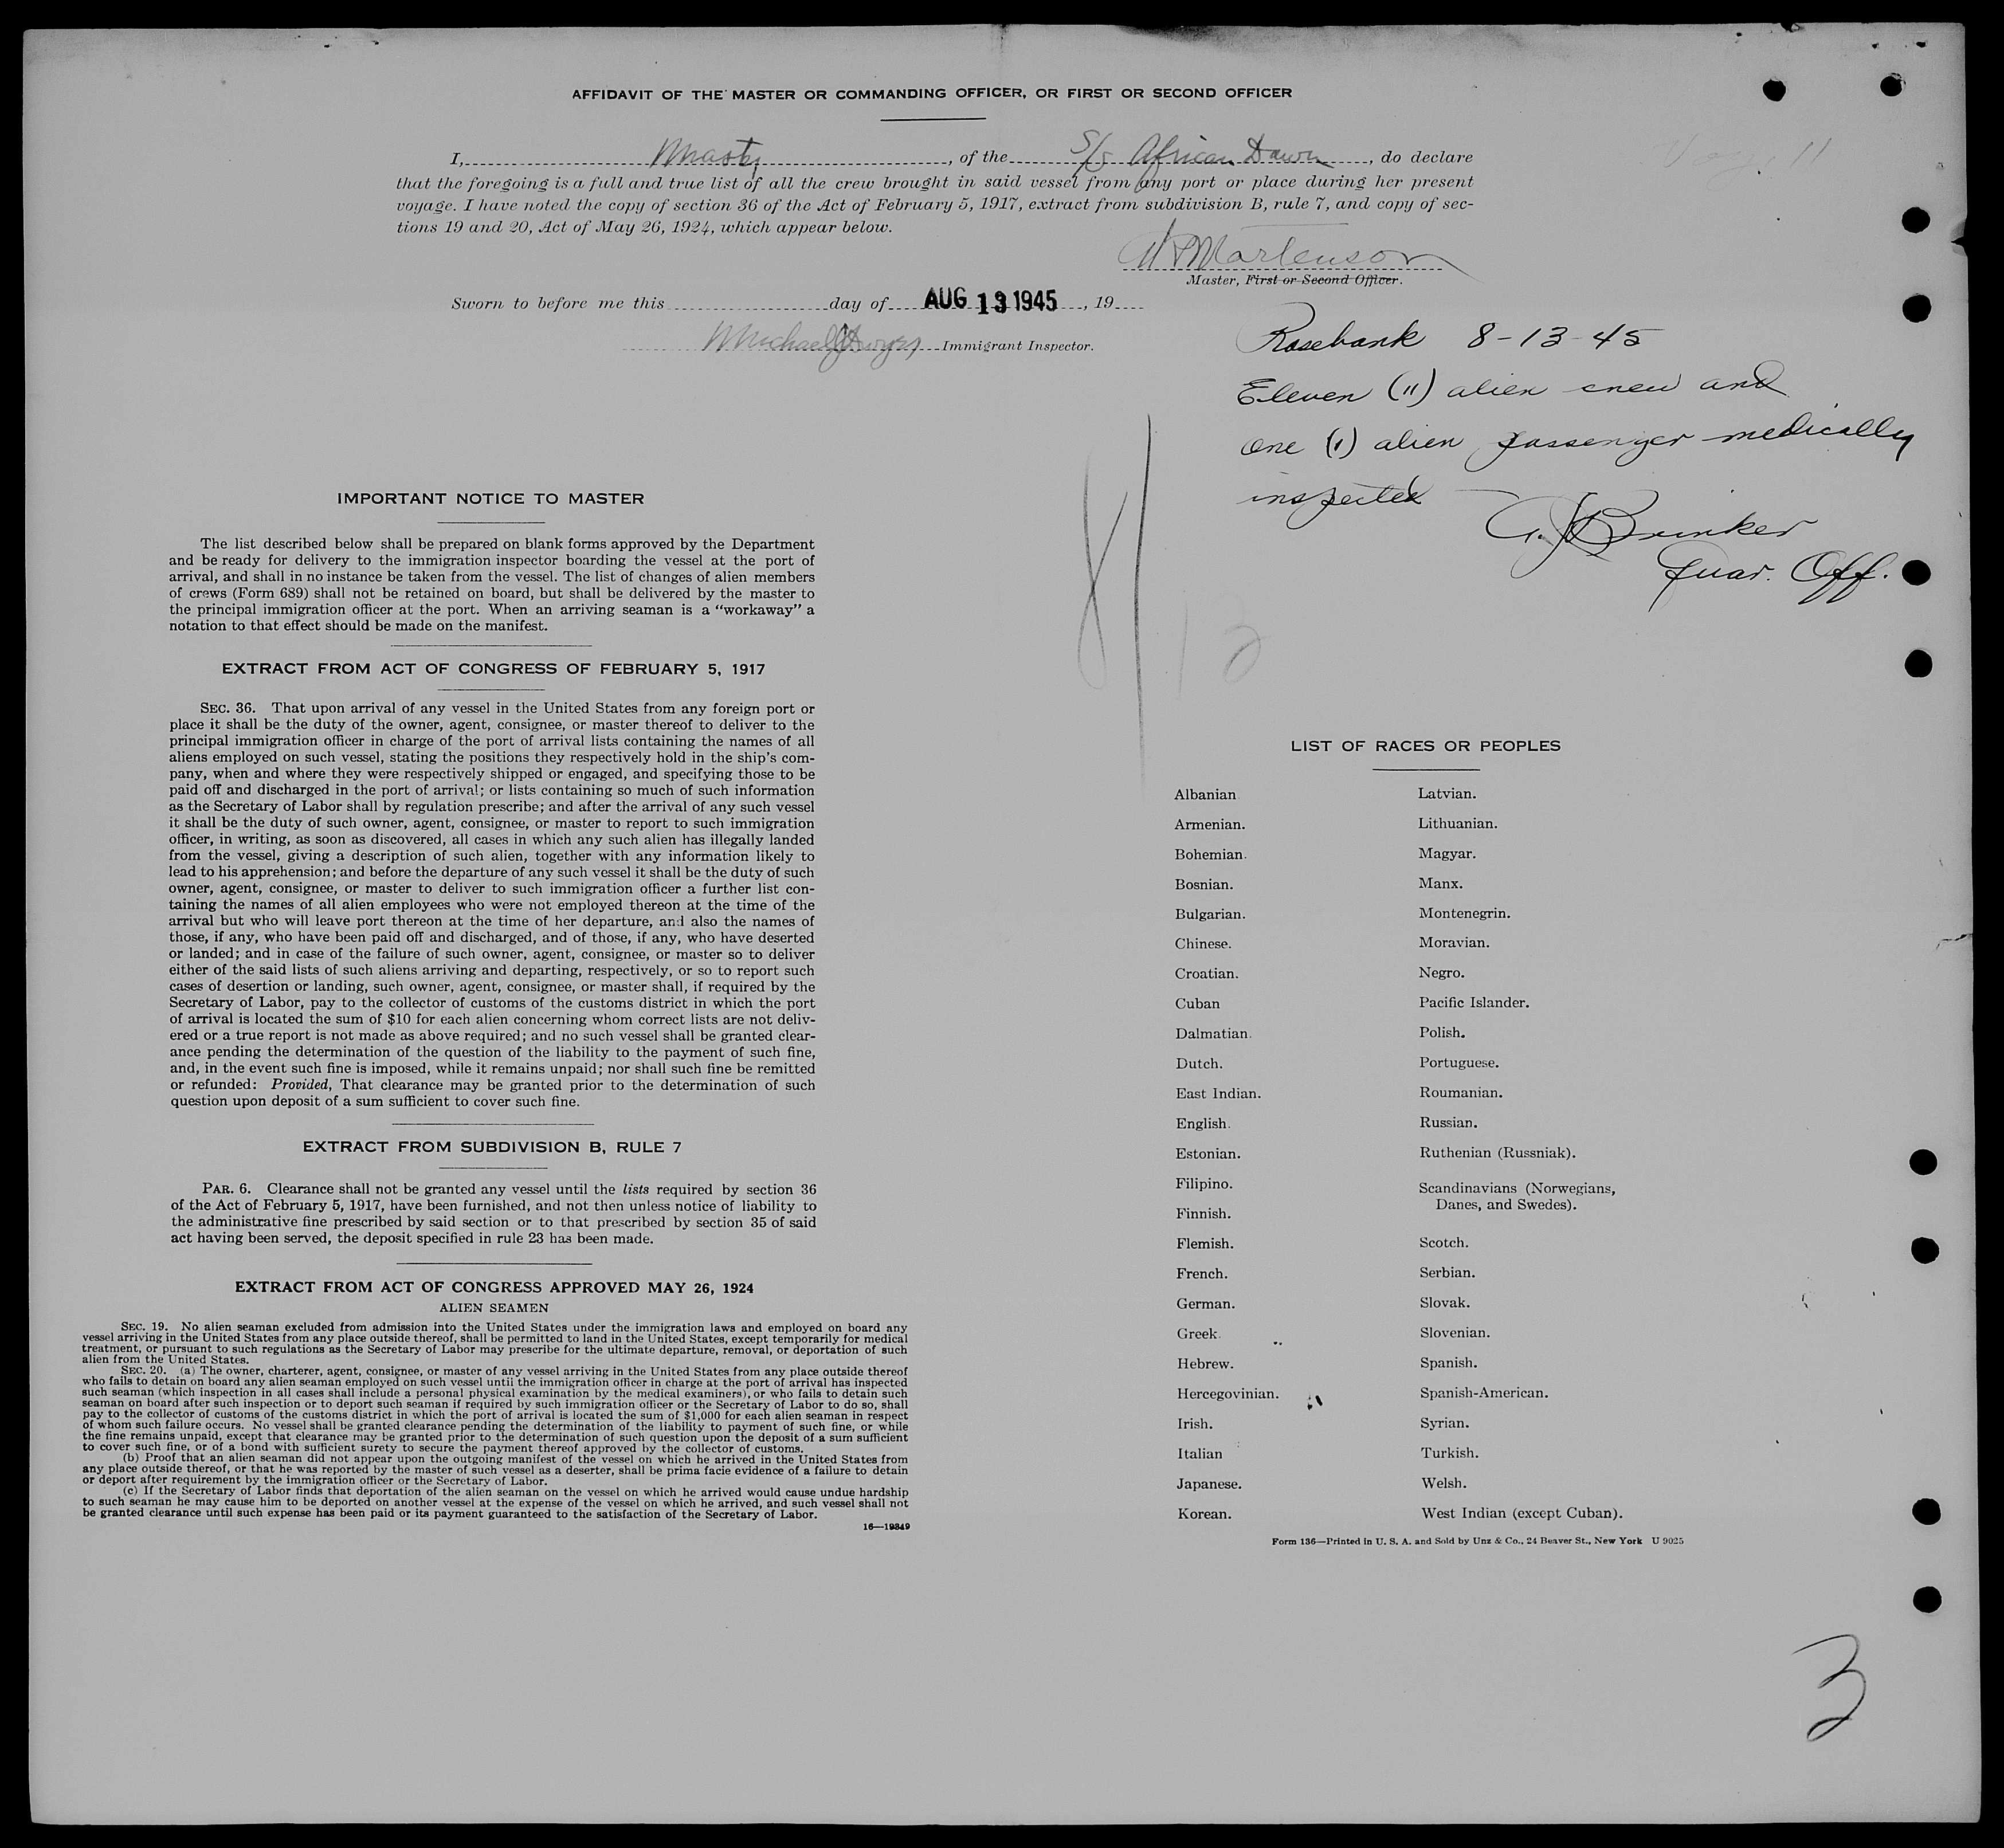 AFFIDAVIT OF THE MASTER OR COMMANDING OFFICER, OR FIRST OR SECOND OFFICER
I, Master, of the S/S African Dawn, do declare
that the foregoing is a full and true list of all the crew brought in said vessel from any port or place during her present
voyage. I have noted the copy of section 36 of the Act of February 5, 1917, extract from subdivision B, rule 7, and copy of sec-
tions 19 and 20, Act of May 26, 1924, which appear below.
Voy. 11
Martenson
Master, First or Second Officer.
Sworn to before me this day of AUG 13 1945, 19
Michael Immigrant Inspector.
Rosebank 8-13-45
Eleven (11) alien crew and
one (1) alien passenger medically
inspected
Brinker
Quar. Off.
8/13
IMPORTANT NOTICE TO MASTER
The list described below shall be prepared on blank forms approved by the Department
and be ready for delivery to the immigration inspector boarding the vessel at the port of
arrival, and shall in no instance be taken from the vessel. The list of changes of alien members
of crews (Form 689) shall not be retained on board, but shall be delivered by the master to
the principal immigration officer at the port. When an arriving seaman is a "workaway" a
notation to that effect should be made on the manifest.
EXTRACT FROM ACT OF CONGRESS OF FEBRUARY 5, 1917
SEC. 36. That upon arrival of any vessel in the United States from any foreign port or
place it shall be the duty of the owner, agent, consignee, or master thereof to deliver to the
principal immigration officer in charge of the port of arrival lists containing the names of all
aliens employed on such vessel, stating the positions they respectively hold in the ship's com-
pany, when and where they were respectively shipped or engaged, and specifying those to be
paid off and discharged in the port of arrival; or lists containing so much of such information
as the Secretary of Labor shall by regulation prescribe; and after the arrival of any such vessel
it shall be the duty of such owner, agent, consignee, or master to report to such immigration
officer, in writing, as soon as discovered, all cases in which any such alien has illegally landed
from the vessel, giving a description of such alien, together with any information likely to
lead to his apprehension; and before the departure of any such vessel it shall be the duty of such
owner, agent, consignee, or master to deliver to such immigration officer a further list con-
taining the names of all alien employees who were not employed thereon at the time of the
arrival but who will leave port thereon at the time of her departure, and also the names of
those, if any, who have been paid off and discharged, and of those, if any, who have deserted
or landed; and in case of the failure of such owner, agent, consignee, or master so to deliver
either of the said lists of such aliens arriving and departing, respectively, or so to report such
cases of desertion or landing, such owner, agent, consignee, or master shall, if required by the
Secretary of Labor, pay to the collector of customs of the customs district in which the port
of arrival is located the sum of $10 for each alien concerning whom correct lists are not deliv-
ered or a true report is not made as above required; and no such vessel shall be granted clear-
ance pending the determination of the question of the liability to the payment of such fine,
and, in the event such fine is imposed, while it remains unpaid; nor shall such fine be remitted
or refunded: Provided, That clearance may be granted prior to the determination of such
question upon deposit of a sum sufficient to cover such fine.
EXTRACT FROM SUBDIVISION B, RULE 7
PAR. 6. Clearance shall not be granted any vessel until the lists required by section 36
of the Act of February 5, 1917, have been furnished, and not then unless notice of liability to
the administrative fine prescribed by said section or to that prescribed by section 35 of said
act having been served, the deposit specified in rule 23 has been made.
EXTRACT FROM ACT OF CONGRESS APPROVED MAY 26, 1924
ALIEN SEAMEN
SEC. 19. No alien seaman excluded from admission into the United States under the immigration laws and employed on board any
vessel arriving in the United States from any place outside thereof, shall be permitted to land in the United States, except temporarily for medical
treatment, or pursuant to such regulations as the Secretary of Labor may prescribe for the ultimate departure, removal, or deportation of such
alien from the United States.
SEC. 20. (a) The owner, charterer, agent, consignee, or master of any vessel arriving in the United States from any place outside thereof
who fails to detain on board any alien seaman employed on such vessel until the immigration officer in charge at the port of arrival has inspected
such seaman (which inspection in all cases shall include a personal physical examination by the medical examiners), or who fails to detain such
seaman on board after such inspection or to deport such seaman if required by such immigration officer or the Secretary of Labor to do so, shall
pay to the collector of customs of the customs district in which the port of arrival is located the sum of $1,000 for each alien seaman in respect
of whom such failure occurs. No vessel shall be granted clearance pending the determination of the liability to payment of such fine, or while
the fine remains unpaid, except that clearance may be granted prior to the determination of such question upon the deposit of a sum sufficient
to cover such fine, or of a bond with sufficient surety to secure the payment thereof approved by the collector of customs.
(b) Proof that an alien seaman did not appear upon the outgoing manifest of the vessel on which he arrived in the United States from
any place outside thereof, or that he was reported by the master of such vessel as a deserter, shall be prima facie evidence of a failure to detain
or deport after requirement by the immigration officer or the Secretary of Labor.
(c) If the Secretary of Labor finds that deportation of the alien seaman on the vessel on which he arrived would cause undue hardship
to such seaman he may cause him to be deported on another vessel at the expense of the vessel on which he arrived, and such vessel shall not
be granted clearance until such expense has been paid or its payment guaranteed to the satisfaction of the Secretary of Labor.
16—19849
LIST OF RACES OR PEOPLES
Albanian
Armenian.
Bohemian.
Bosnian.
Bulgarian.
Chinese.
Croatian.
Cuban
Dalmatian.
Dutch.
East Indian.
English.
Estonian.
Filipino.
Finnish.
Flemish.
French.
German.
Greek.
Hebrew.
Hercegovinian.
Irish.
Italian
Japanese.
Korean.
Latvian.
Lithuanian.
Magyar.
Manx.
Montenegrin.
Moravian.
Negro.
Pacific Islander.
Polish.
Portuguese.
Roumanian.
Russian.
Ruthenian (Russniak).
Scandinavians (Norwegians,
Danes, and Swedes).
Scotch.
Serbian.
Slovak.
Slovenian.
Spanish.
Spanish-American.
Syrian.
Turkish.
Welsh.
West Indian (except Cuban).
Form 136—Printed in U. S. A. and Sold by Unz & Co., 24 Beaver St., New York U 9025
3